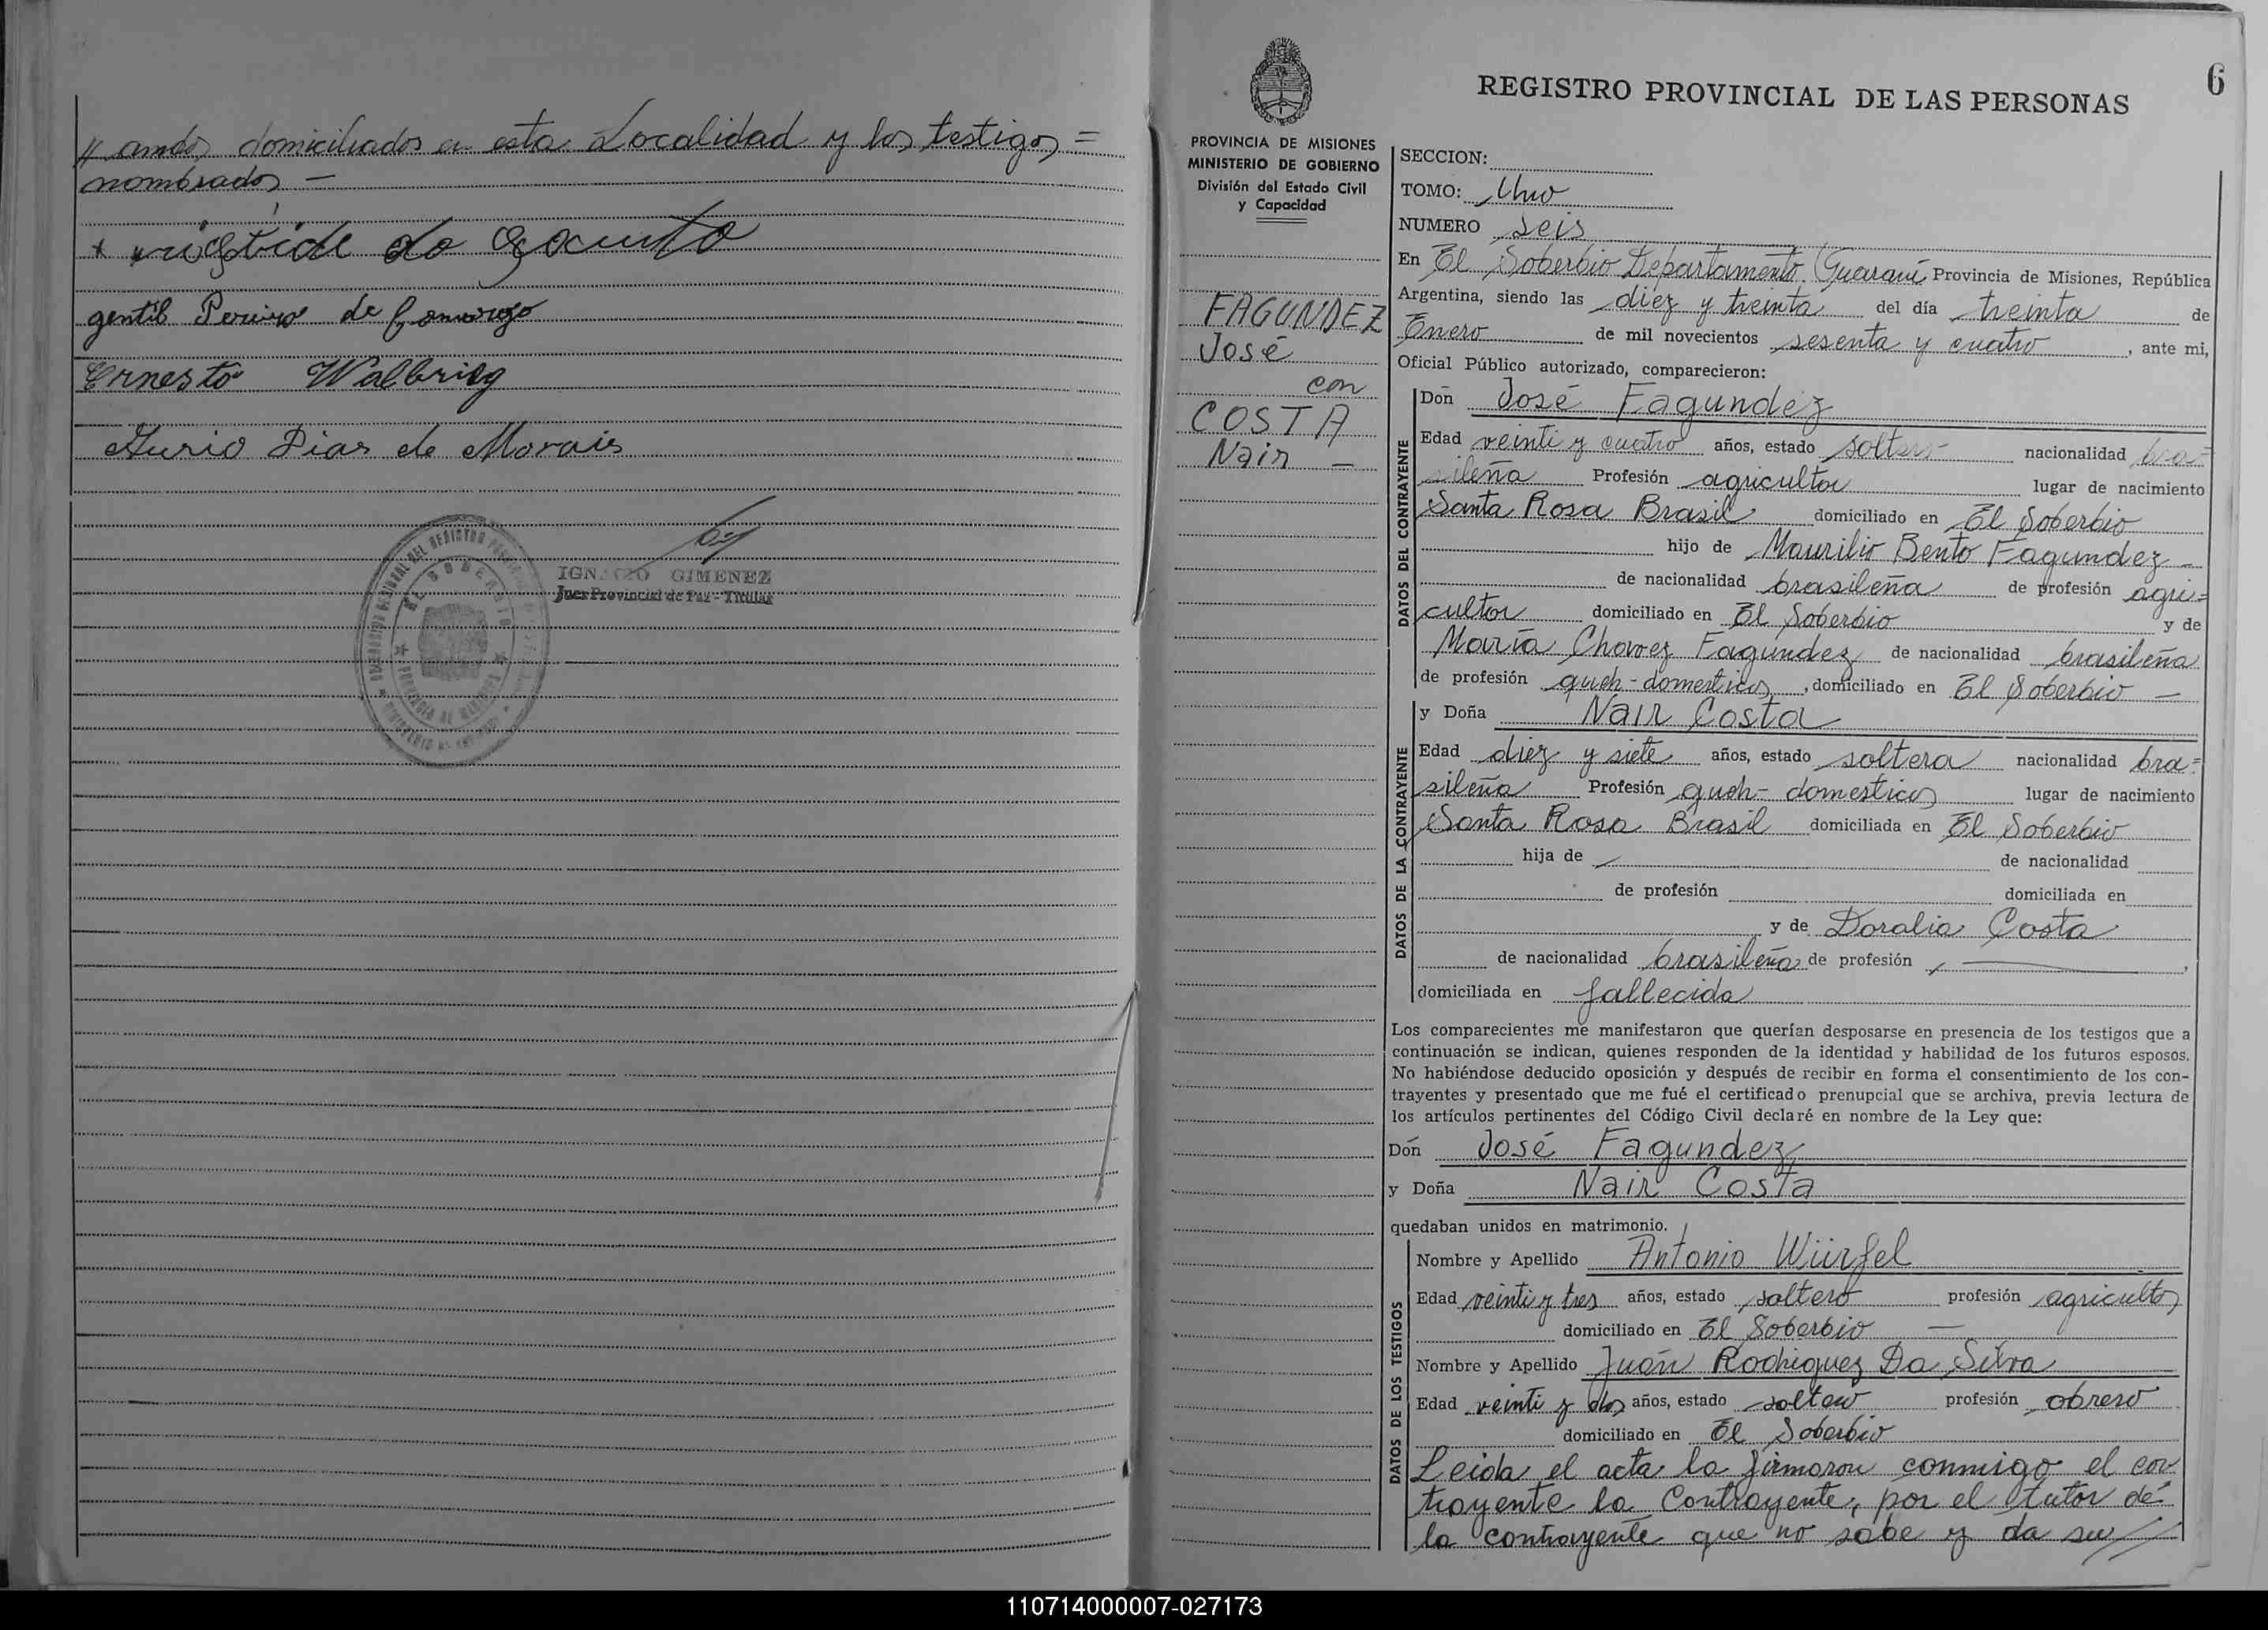 // ambos domiciliados en esta Localidad y los testigos =
nombrados –
gentil Pereira de Camargo
Ernesto Walbrieg
Dias de Morais
IGNACIO GIMENEZ
Juez Provincial de Paz - Titular
EL SOBERBIO
PROVINCIA DE MISIONES
6
REGISTRO PROVINCIAL DE LAS PERSONAS
PROVINCIA DE MISIONES
MINISTERIO DE GOBIERNO
División del Estado Civil
y Capacidad
FAGUNDEZ
José
con
COSTA
Nair –
SECCION:
TOMO: Uno
NUMERO Seis
En El Soberbio Departamento Guaraní Provincia de Misiones, República
Argentina, siendo las diez y treinta del día treinta de
Enero de mil novecientos sesenta y cuatro, ante mi,
Oficial Público autorizado, comparecieron:
DATOS DEL CONTRAYENTE
Don José Fagundez
Edad veinti y cuatro años, estado soltero nacionalidad bra=
sileña Profesión agricultor lugar de nacimiento
Santa Rosa Brasil domiciliado en El Soberbio
hijo de Maurilio Bento Fagundez –
de nacionalidad brasileña de profesión agri=
cultor domiciliado en El Soberbio y de
María Chavez Fagundez de nacionalidad brasileña
de profesión queh-domesticos, domiciliado en El Soberbio –
DATOS DE LA CONTRAYENTE
y Doña Nair Costa
Edad diez y siete años, estado soltera nacionalidad bra=
sileña Profesión queh- domesticos lugar de nacimiento
Santa Rosa Brasil domiciliada en El Soberbio
hija de de nacionalidad
de profesión domiciliada en
y de Doralia Costa
de nacionalidad brasileña de profesión ,
domiciliada en fallecida
Los comparecientes me manifestaron que querían desposarse en presencia de los testigos que a
continuación se indican, quienes responden de la identidad y habilidad de los futuros esposos.
No habiéndose deducido oposición y después de recibir en forma el consentimiento de los con-
trayentes y presentado que me fué el certificado prenupcial que se archiva, previa lectura de
los artículos pertinentes del Código Civil declaré en nombre de la Ley que:
Dón José Fagundez
y Doña Nair Costa
quedaban unidos en matrimonio.
DATOS DE LOS TESTIGOS
Nombre y Apellido Antonio Würfel
Edad veinti y tres años, estado soltero profesión agricultor
domiciliado en El Soberbio –
Nombre y Apellido Juán Rodriguez Da Silva
Edad veinti y dos años, estado soltero profesión obrero
domiciliado en El Soberbio
Leida el acta la firmaron conmigo el con
trayente la Contrayente, por el tutor de
la contrayente que no sabe y da su //
110714000007-027173